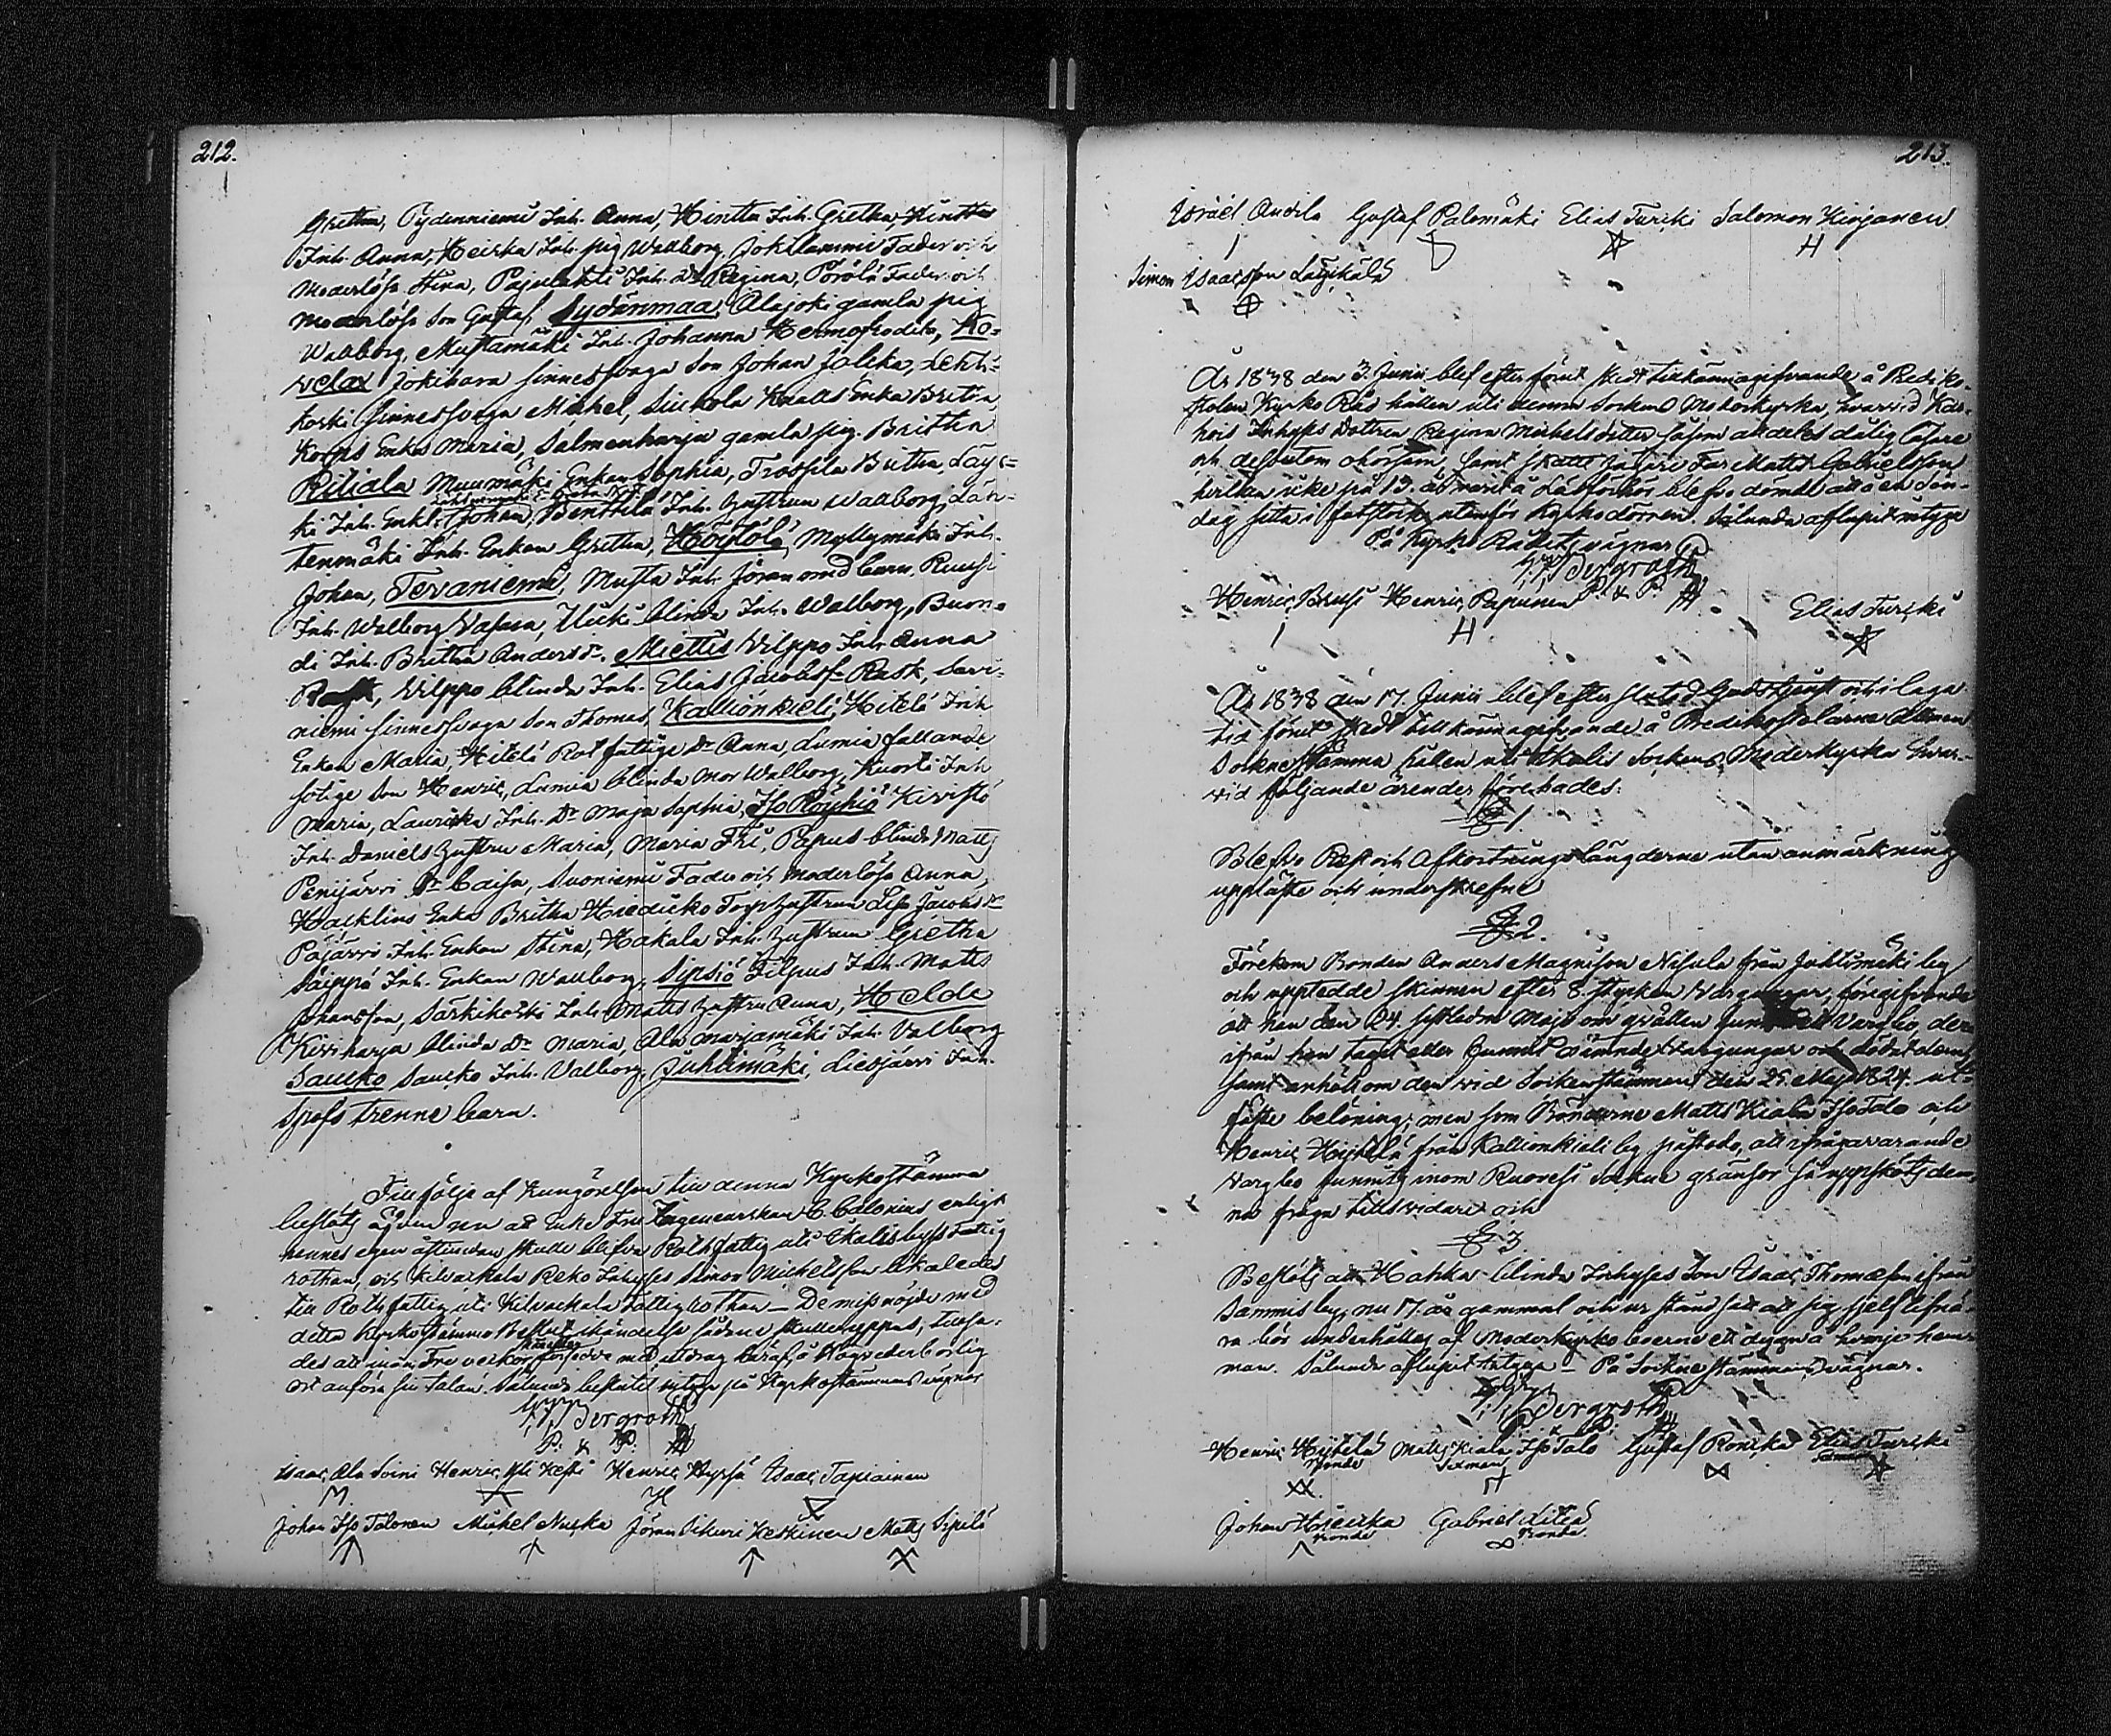 212.
Grethea, Pydenniemi Inh. Anna, Hintta Inh. Gretha, Hintta
Inh. Anna, Heiska Inh. pig Walborg, Jokilammi Fader och
Moderlösa Stina, Pajulahti Inh. Dr Regina, Pörölä Fader och
Moderlösa Son Gustaf, Sydänmaa, Alajoki gamla pig
Walborg, Mustamäki Inh. Johanna Hermofrodita, Ko-
velax Jokihara sinnessvaga Son Johan Jalika, Lehti-
koski sinnessvaga Michel, Siukola Knalls Enka Britha
Korps Enka Maria, Salmenharja gamla pig. Britha
Riitiala Muumäki Enkan Sophia, Trossila Britha, Lay-
ki Inh. Enkl. Johan, Benttilä Inh. hustrun Walborg, Läh-
tenmäki Inh. Enkan Gretha, Höytölä, Myllymäki Inh.
Johan, Tevaniemi, Musta Inh. Jöran med barn, Ruusi
Inh. Walborg Vasara, Ulicki blinda Inh. Walborg, Buon-
di Inh. Britha Anders Dr, Miettis Wilppo Inh. Anna
Rask, Wilppo blinda Inh. Elias Jacobss. Rask, Savi-
niemi sinnessvaga Son Thomas, Kallionkieli, Hitelä Inh
Enkan Maria, Hitelä Rotfattige Dr Anna, Lumia fallande
sotige Son Henric, Lumia blinda Mor Walborg, Kuosti Inh
Maria, Lauricka Inh. Dr Maja Sophia, Iso Röyhiö Kivistö
Inh. Daniels hustru Maria, Maria Fri, Papus blinde Matts
Penijärvi Dr Caisa, Suoniemi Fader och Moderlösa Anna
Hacklins Enka Britha Torp hustrun Lisa Jacobs Dr
Pajärvi Inh. Enkan Stina, Hakala Inh. hustrun Gretha
Säippä Inh. Enkan Walborg, Sipsiö Filpus Inh. Matts
Johansson, Särkikoski Inh. Matts hustru Anna, Heldo
Kiviharja blinda Dr Maria, Ala marjamäki Inh. Valborg
Saucko Saucko Inh. Valborg, Juhtimäki, Liesjärvi Inh.
Josefs trenne barn.
Till följe af kungörelsen till denna Kyrkostämma
beslöts äfven att Enke Fru C. Calonius enligt
hennes egen åstundan skulle blifva Rothfattig uti Ikalis bys Fattig
rothan, och Kilvackala Reko Inhyses Simon Michelsson likaledes
till Rothfattig uti Kilvackala Fattig rothan — De missnöjde med
detta Kyrkostämmo Beslut ihändelse sådane skulle yppas, tillsa-
des att inom Tre veckor försedde med utdrag häraf, å Högvederbörlig
ort anföra sin talan. Således beslutit intyga på Kyrkostämmans vägnar
Bergroth
P. & P.
Isaac Ala Soini Henric Yli Kesti Henric Hyrsä Isaac Tapiainen
Johan Iso Talonen Michel Nuska Jöran Sikuri Keskinen Matts Sipilä
213.
Israël Ancila Gustaf Palomäki Elias Turcki Salomon Kirjanen
Simon Isaacsson Läyskälä
År 1838 den 3. Junii blef efter förut skedt tillkännagifvande å Prediko-
stolen, Kyrko Råd hållen uti denna Sockens Moderkyrka, hvarvid Kar-
hois Inhyses Dottren Regina Michelsdotter såsom alldeles dålig läsare
och dessutom ohörsam, samt Skatte Jägare Far Matts Gabrielsson
hvilka icke på 13. år varit å Läsförhör blefvo dömde att å en Sön-
dag sitta i fotstock utanför Kyrkodörren. Sålunda afslutit intyga
På Kyrko Rådets vägnar
Bergroth
P. & P.
Henric Brusi Henric Papunen Elias Turcki
År 1838 den 17. Junii blef efter slutad Gudstjenst och i laga
tid förut skedt tillkännagifvande å Predikostolarne Allmen
Sockne Stämma hållen uti Ikalis Sockens Moderkyrka hvar-
vid följande ärender förehades:
§ 1.
Blefvo Rest och Afkortnings längderne utan anmärkning
uppläste och underskrefne
§ 2.
Förekom Bonden Anders Magnisson Nisula från Juhtimäki by
och uppteddde skinnen efter 8. stycken Vargungar, föregifvande
att han den 24. sistledne Maji om qvällen funnit ett Vargbo, der
ifrån han tagit eller Vargungar och dödat dem,
samt anhöll om den vid Sockenstämman den 25. Maji 1824. ut-
fäste belöning; men som Bönderne Matts Kiala Iso Talo och
Henric Höytölä från Kallionkieli by påstodo, att ifrågavarande
Vargbo funnits inom Ruovesi Sockne gränsor, så uppsköts den-
na fråga tills vidare och
§ 3
Beslöts att Hahka blinda Inhyses Son Isaac Thomasson ifrån
Sammis by, nu 17. år gammal och ur stånd satt att sig sjelf lifnä-
ra bör underhållas af Moderkyrko boerne ett dygn å hvarje hem-
man. Sålunda afslutit intyga — På Sockne stämmans vägnar.
Bergroth
P. & P.
Henric Höytölä Matts Kiala Iso Talo Gustaf Ronska Elias Turcki
Bonde Sexman Sexman
Johan Hiecka Gabriel Litiä
Bonde Bonde